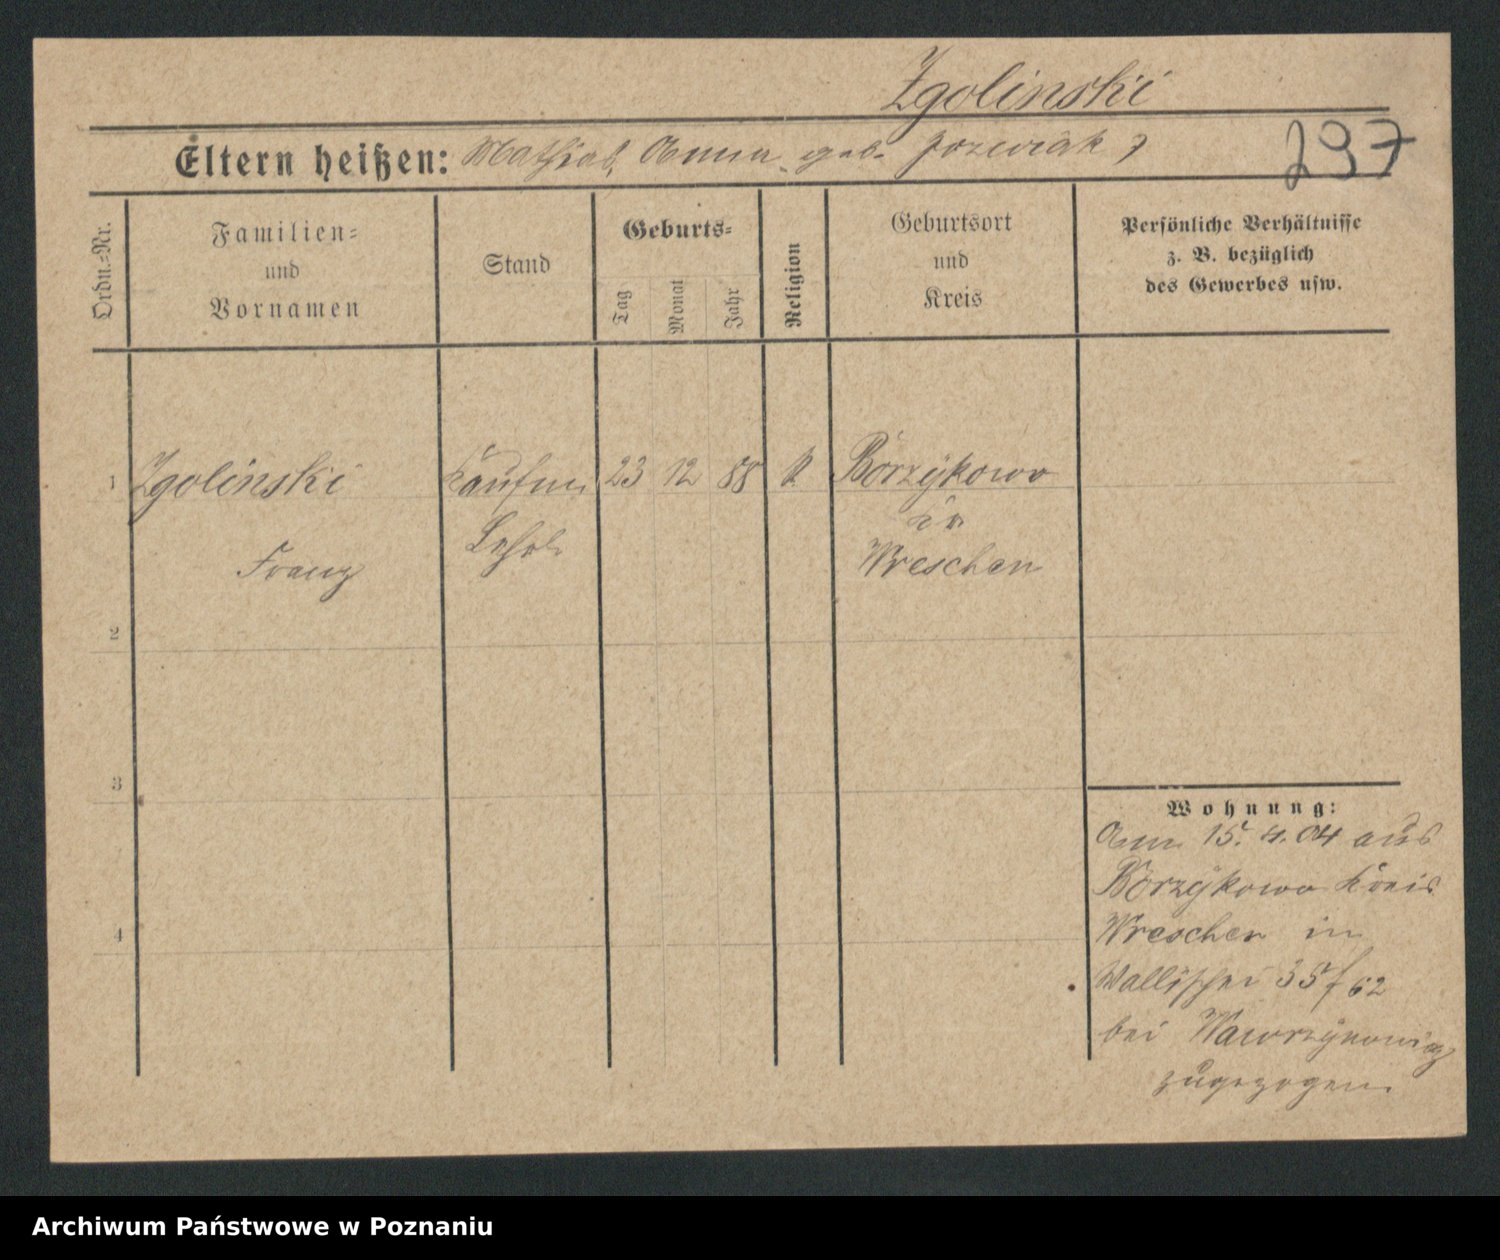 Zgolinski
Eltern heißen: Mathias, Anna geb. Jozwiak
297
Ordn.-Nr.
Familien-
und
Vornamen
Stand
Geburts-
Tag
Monat
Jahr
Religion
Geburtsort
und
Kreis
Persönliche Verhältnisse
z. B. bezüglich
des Gewerbes usw.
1 Zgolinski Kaufm. 23 12 88 k Borzykowo
Kr.
Franz Lehrl. Wreschen
2
3
4
Wohnung:
Am 15. 4. 04 aus
Borzykowo Kreis
Wreschen in
Wallischei 35/62
bei Wawrzynowicz
zugezogen.
Archiwum Państwowe w Poznaniu